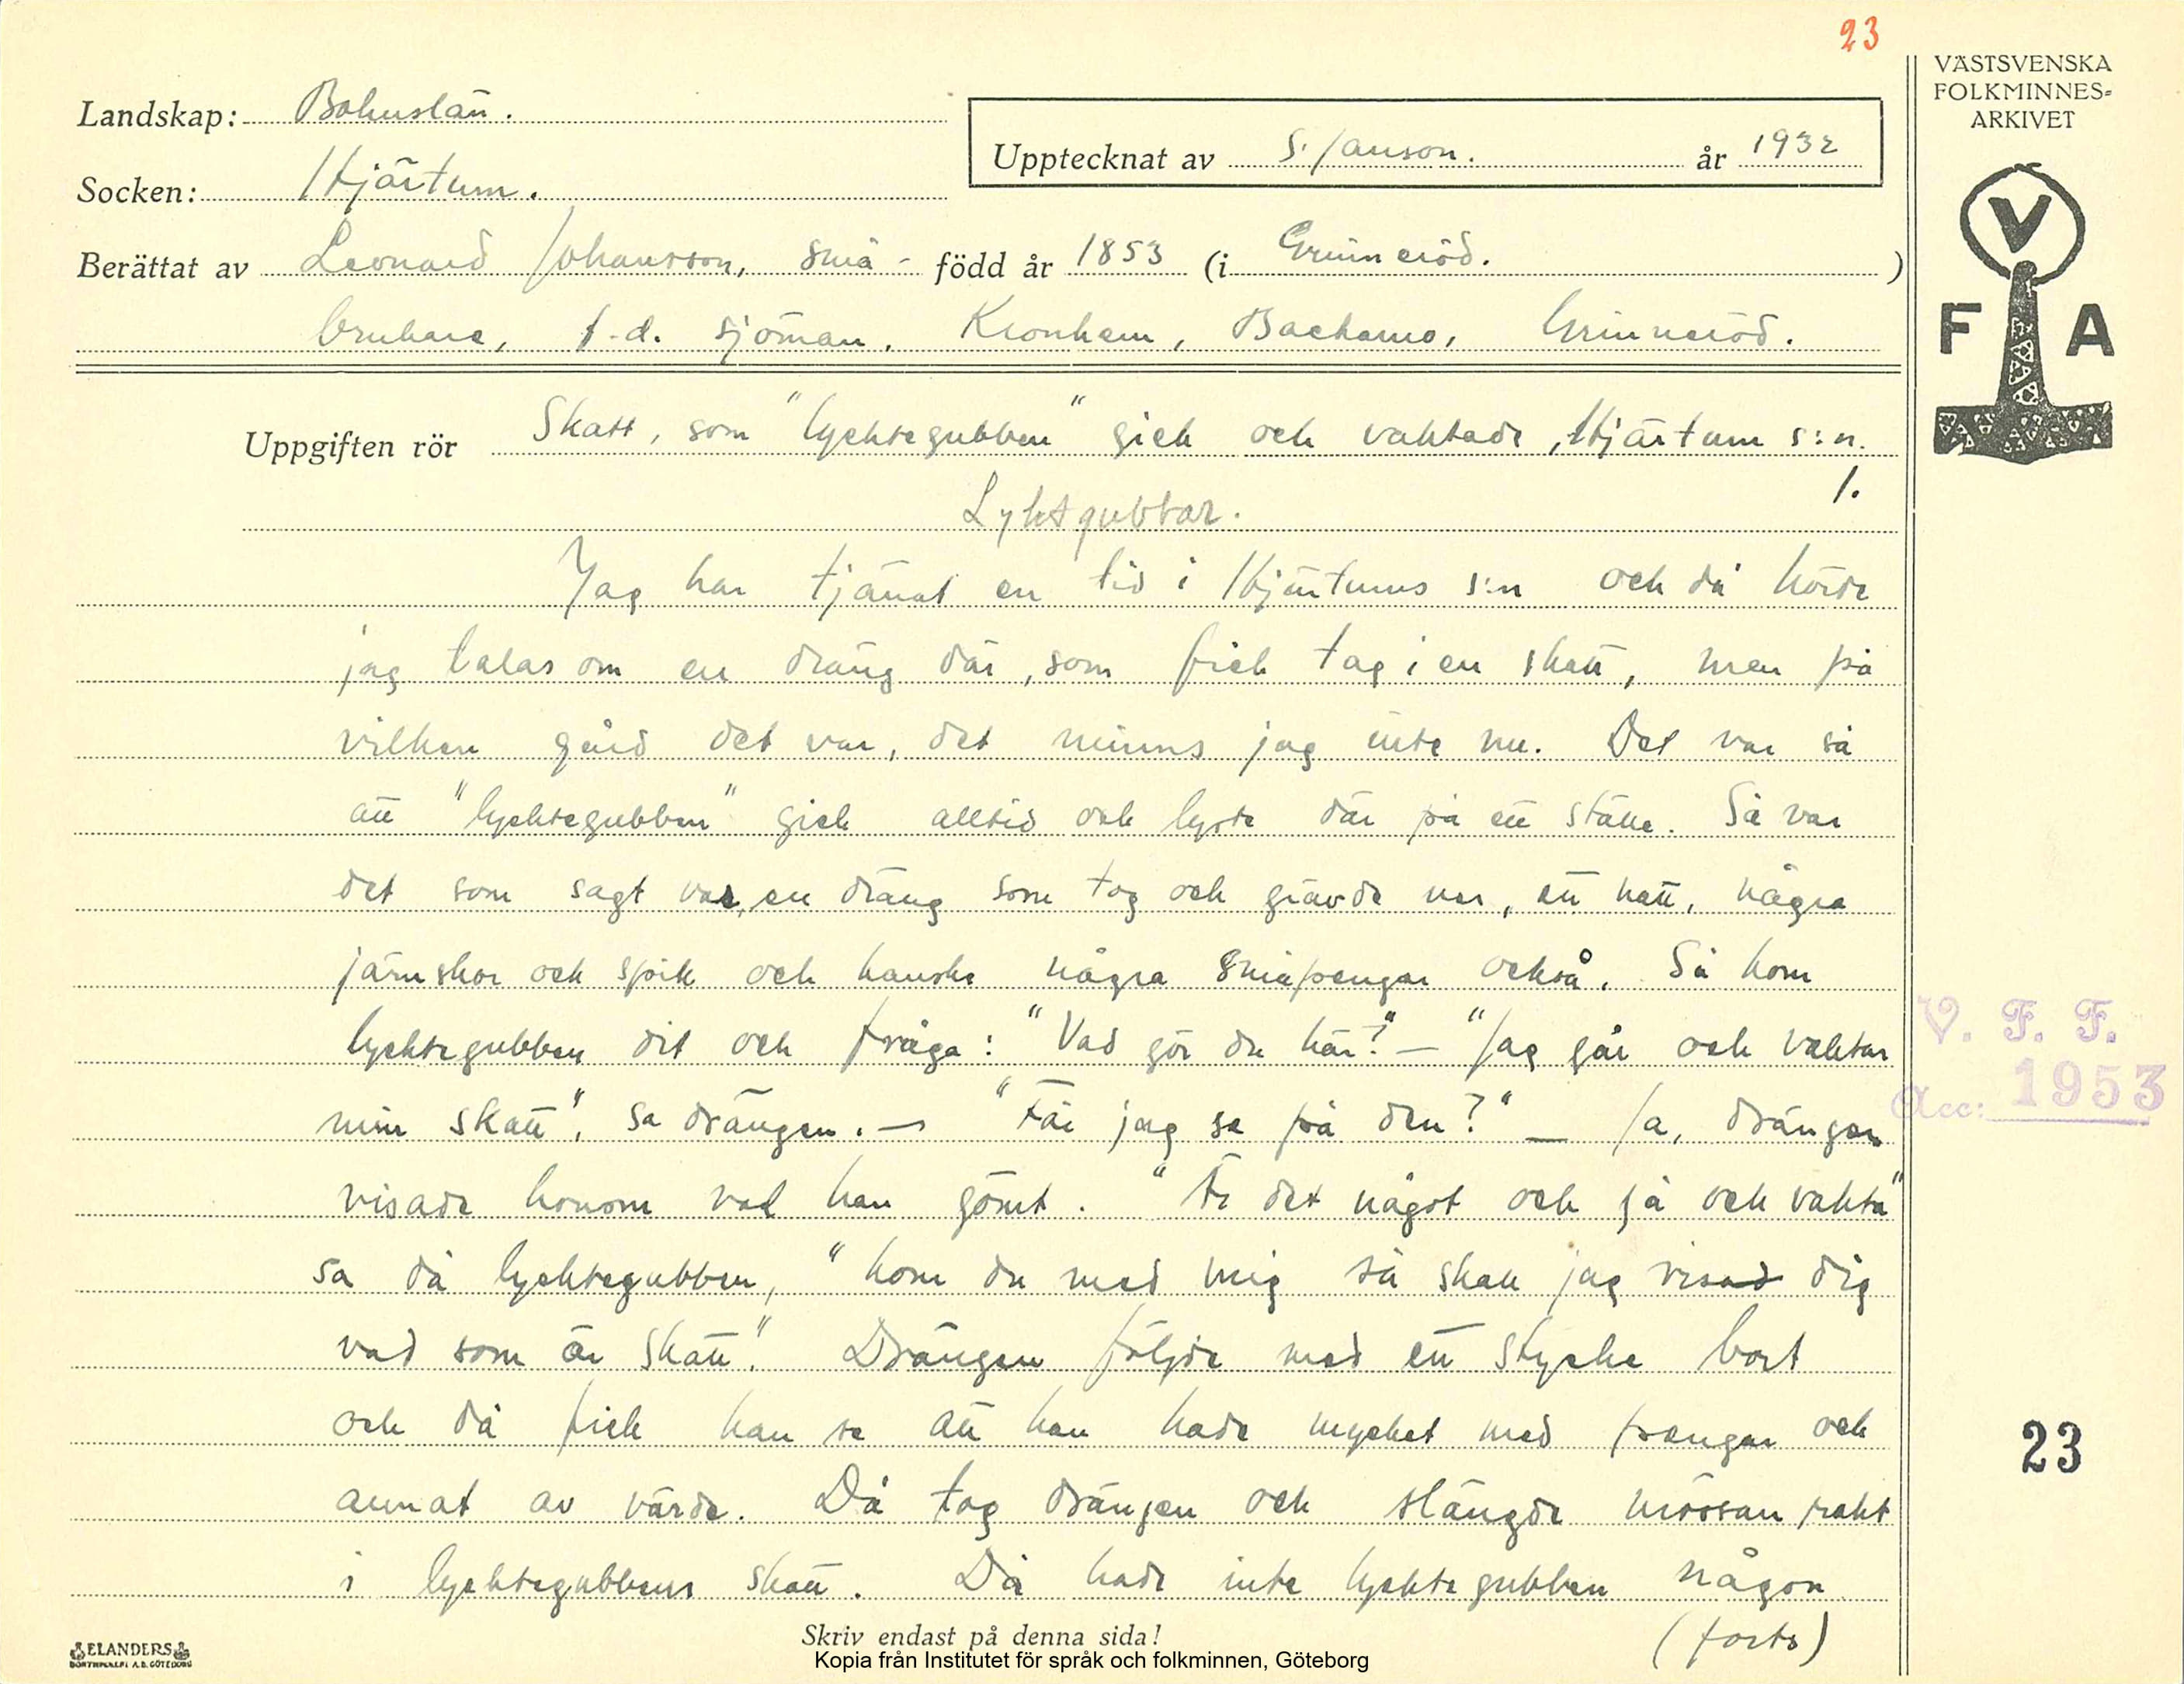 23
VÄSTSVENSKA
FOLKMINNES=
ARKIVET
Landskap: Bohuslän.
Upptecknat av S. Janson. år 1932
Socken: Hjärtum.
Berättat av Leonard Johansson, små- född år 1853 (i Grinneröd.)
brukare, f.d. sjöman, Kronhem, Backamo, Grinneröd.
V
F A
Uppgiften rör Skatt, som "lycktegubben" gick och vaktade, Hjärtum s:n.
1.
Lyktgubbar.
Jag har tjänat en tid i Hjärtums s:n och då hörde
jag talas om en dräng där, som fick tag i en skatt, men på
vilken gård det var, det minns jag inte nu. Det var så
att "lycktegubben" gick alltid och lyste där på ett ställe. Så var
det som sagt var, en dräng som tog och grävde ner, en hatt, några
järnskor och spik och kanske några småpengar också. Så kom
lycktegubben dit och fråga: "Vad gör du här?" – "Jag går och vaktar
min skatt", sa drängen. – "Får jag se på den?" – Ja, drängen
visade honom vad han gömt. "Är det något och gå och vakta"
sa då lycktegubben, "kom du med mig så skall jag visa dig
vad som är skatt." Drängen följde med ett stycke bort
och då fick han se att han hade mycket med pengar och
annat av värde. Då tog drängen och slängde mössan rakt
i lycktegubbens skatt. Då hade inte lycktegubben någon
(forts)
V. F. F.
Acc: 1953
23
ELANDERS
BOKTRYCKERI A.B. GÖTEBORG
Skriv endast på denna sida!
Kopia från Institutet för språk och folkminnen, Göteborg